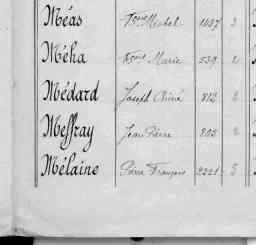 Méas Fçois Michel 1037 2
Méha Fçois Marie 539 2
Médard Joseph Aimé 812 2
Meffray Jean Pierre 805 2
Mélaine Pierre François 2221 5